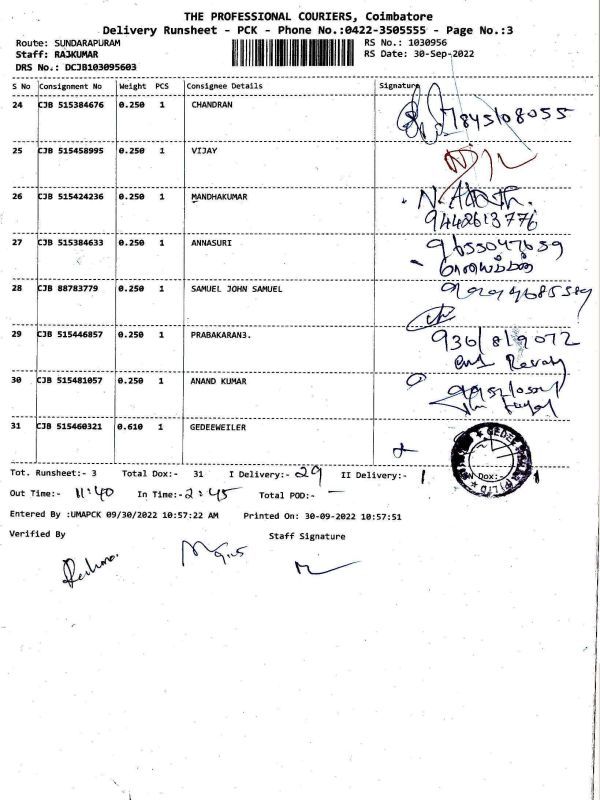 THE PROFESSIONAL COURIERS, Coimbatore
Delivery Runsheet - PCK - Phone No.:0422-3505555 - Page No.:3
Route: SUNDARAPURAM RS No.: 1030956
Staff: RAJKUMAR RS Date: 30-Sep-2022
DRS No.: DCJB103095603
S No Consignment No Weight PCS Consignee Details Signature
24 CJB 515384676 0.250 1 CHANDRAN 7845108055
25 CJB 515458995 0.250 1 VIJAY
26 CJB 515424236 0.250 1 MANDHAKUMAR
9442613776
27 CJB 515384633 0.250 1 ANNASURI 9655047659
28 CJB 88783779 0.250 1 SAMUEL JOHN SAMUEL
29 CJB 515446857 0.250 1 PRABAKARAN3. 9361819072
Revathy
30 CJB 515481057 0.250 1 ANAND KUMAR
31 CJB 515460321 0.610 1 GEDEEWEILER
Tot. Runsheet:- 3 Total Dox:- 31 I Delivery:- 29 II Delivery:- 1 N Dox:- 1
Out Time:- 11:40 In Time:- 2:45 Total POD:- —
Entered By :UMAPCK 09/30/2022 10:57:22 AM Printed On: 30-09-2022 10:57:51
Verified By Staff Signature